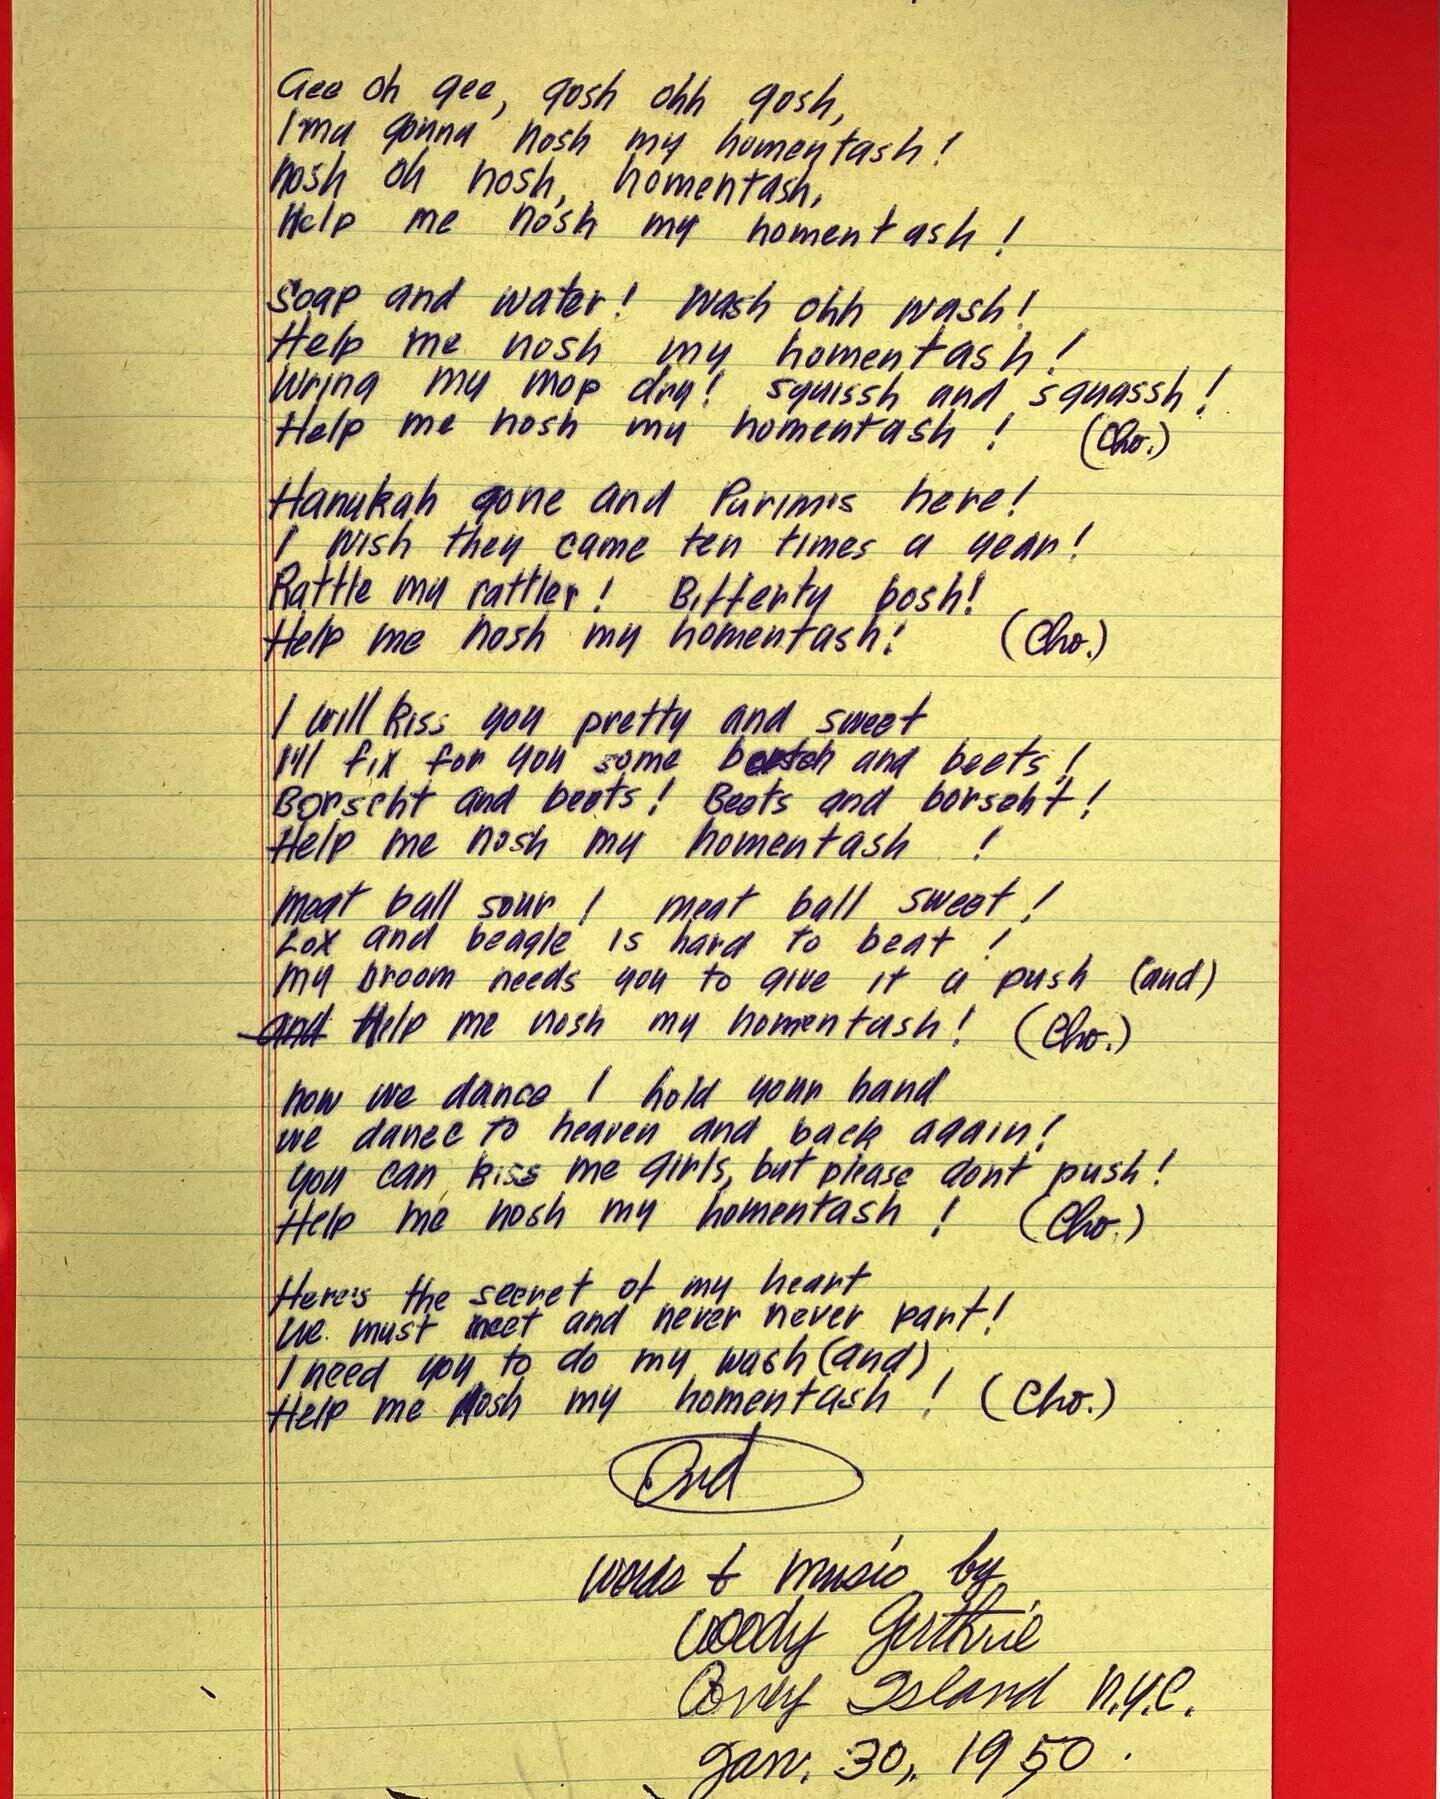 Gee oh gee, gosh ohh gosh,
I'ma gonna nosh my homentash!
Nosh oh nosh, homentash,
Help me nosh my homentash!
Soap and water! Wash ohh wash!
Help me nosh my homentash!
Wring my mop dry! Squissh and squassh!
Help me nosh my homentash! (Cho.)
Hanukah gone and Purim's here!
I wish they came ten times a year!
Rattle my rattler! Bifferty bosh!
Help me nosh my homentash! (Cho.)
I will kiss you pretty and sweet
I'll fix for you some and beets!
Borscht and beets! Beets and borscht!
Help me nosh my homentash !
Meat ball sour! Meat ball sweet!
Lox and beagle is hard to beat!
My broom needs you to give it a push (and)
and Help me nosh my homentash! (Cho.)
Now we dance I hold your hand
We dance to heaven and back again!
You can kiss me girls, but please dont push!
Help me nosh my homentash! (Cho.)
Here's the secret of my heart
We must meet and never never part!
I need you to do my wash (and)
Help me nosh my homentash! (Cho.)
End
Words & Music by
Woody Guthrie
Coney Island N.Y.C.
Jan. 30, 1950.